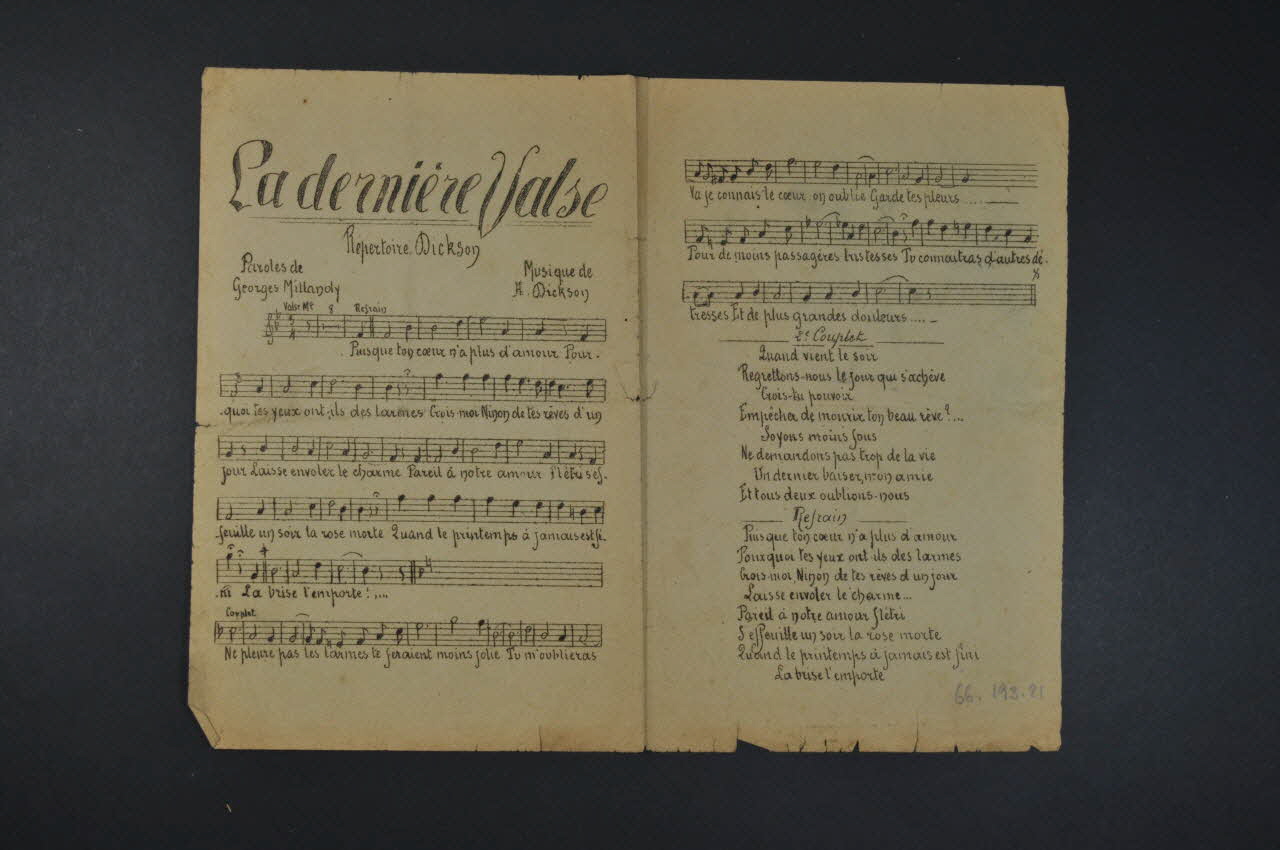 La dernière Valse
Répertoire Dickson
Paroles de
Georges Millandy
Musique de
A. Dickson
Valse Mt 8 Refrain
Puisque ton cœur n'a plus d'amour Pour-
-quoi tes yeux ont-ils des larmes Crois-moi Ninon de tes rêves d'un
jour Laisse envoler le charme Pareil à notre amour flétri s'ef-
-feuille un soir la rose morte Quand le printemps à jamais est fi-
-ni La brise l'emporte!....
Couplet
Ne pleure pas les larmes te feraient moins jolie Tu m'oublieras
Va je connais le cœur on oublie Garde tes pleurs....
Pour de moins passagères tristesses Tu connaitras d'autres dé-
tresses Et de plus grandes douleurs....
2e Couplet
Quand vient le soir
Regrettons-nous le jour qui s'achève
Crois-tu pouvoir
Empêcher de mourir ton beau rêve?...
Soyons moins fous
Ne demandons pas trop de la vie
Un dernier baiser, mon amie
Et tous deux oublions-nous
Refrain
Puisque ton cœur n'a plus d'amour
Pourquoi tes yeux ont-ils des larmes
Crois-moi, Ninon de tes rêves d'un jour
Laisse envoler le charme...
Pareil à notre amour flétri
S'effeuille un soir la rose morte
Quand le printemps à jamais est fini
La brise l'emporte
66.193.21